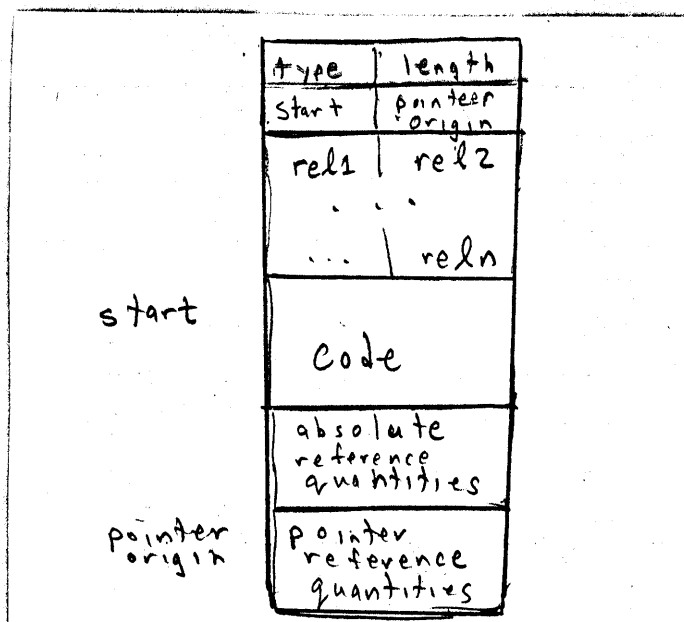 type length
start pointeer
origin
rel1 rel2
. . .
... reln
start
code
absolute
reference
quantities
pointer
origin
pointer
reference
quantities